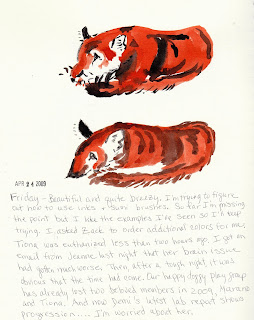 APR 24 2009
Friday - Beautiful and quite breezy. I'm trying to figure
out how to use inks + Sumi brushes. So far I'm missing
the point but I like the examples I've seen so I'll keep
trying. I asked Zack to order additional colors for me.
Tiona was euthanized less than two hours ago. I got an
email from Jeanne last night that her bowel issue
had gotten much worse. Then, after a tough night it was
obvious that the time had come. Our happy doggy play group
has already lost two beloved members in 2009,
and Tiona. And now latest lab report shows
progression..... I'm worried about her.